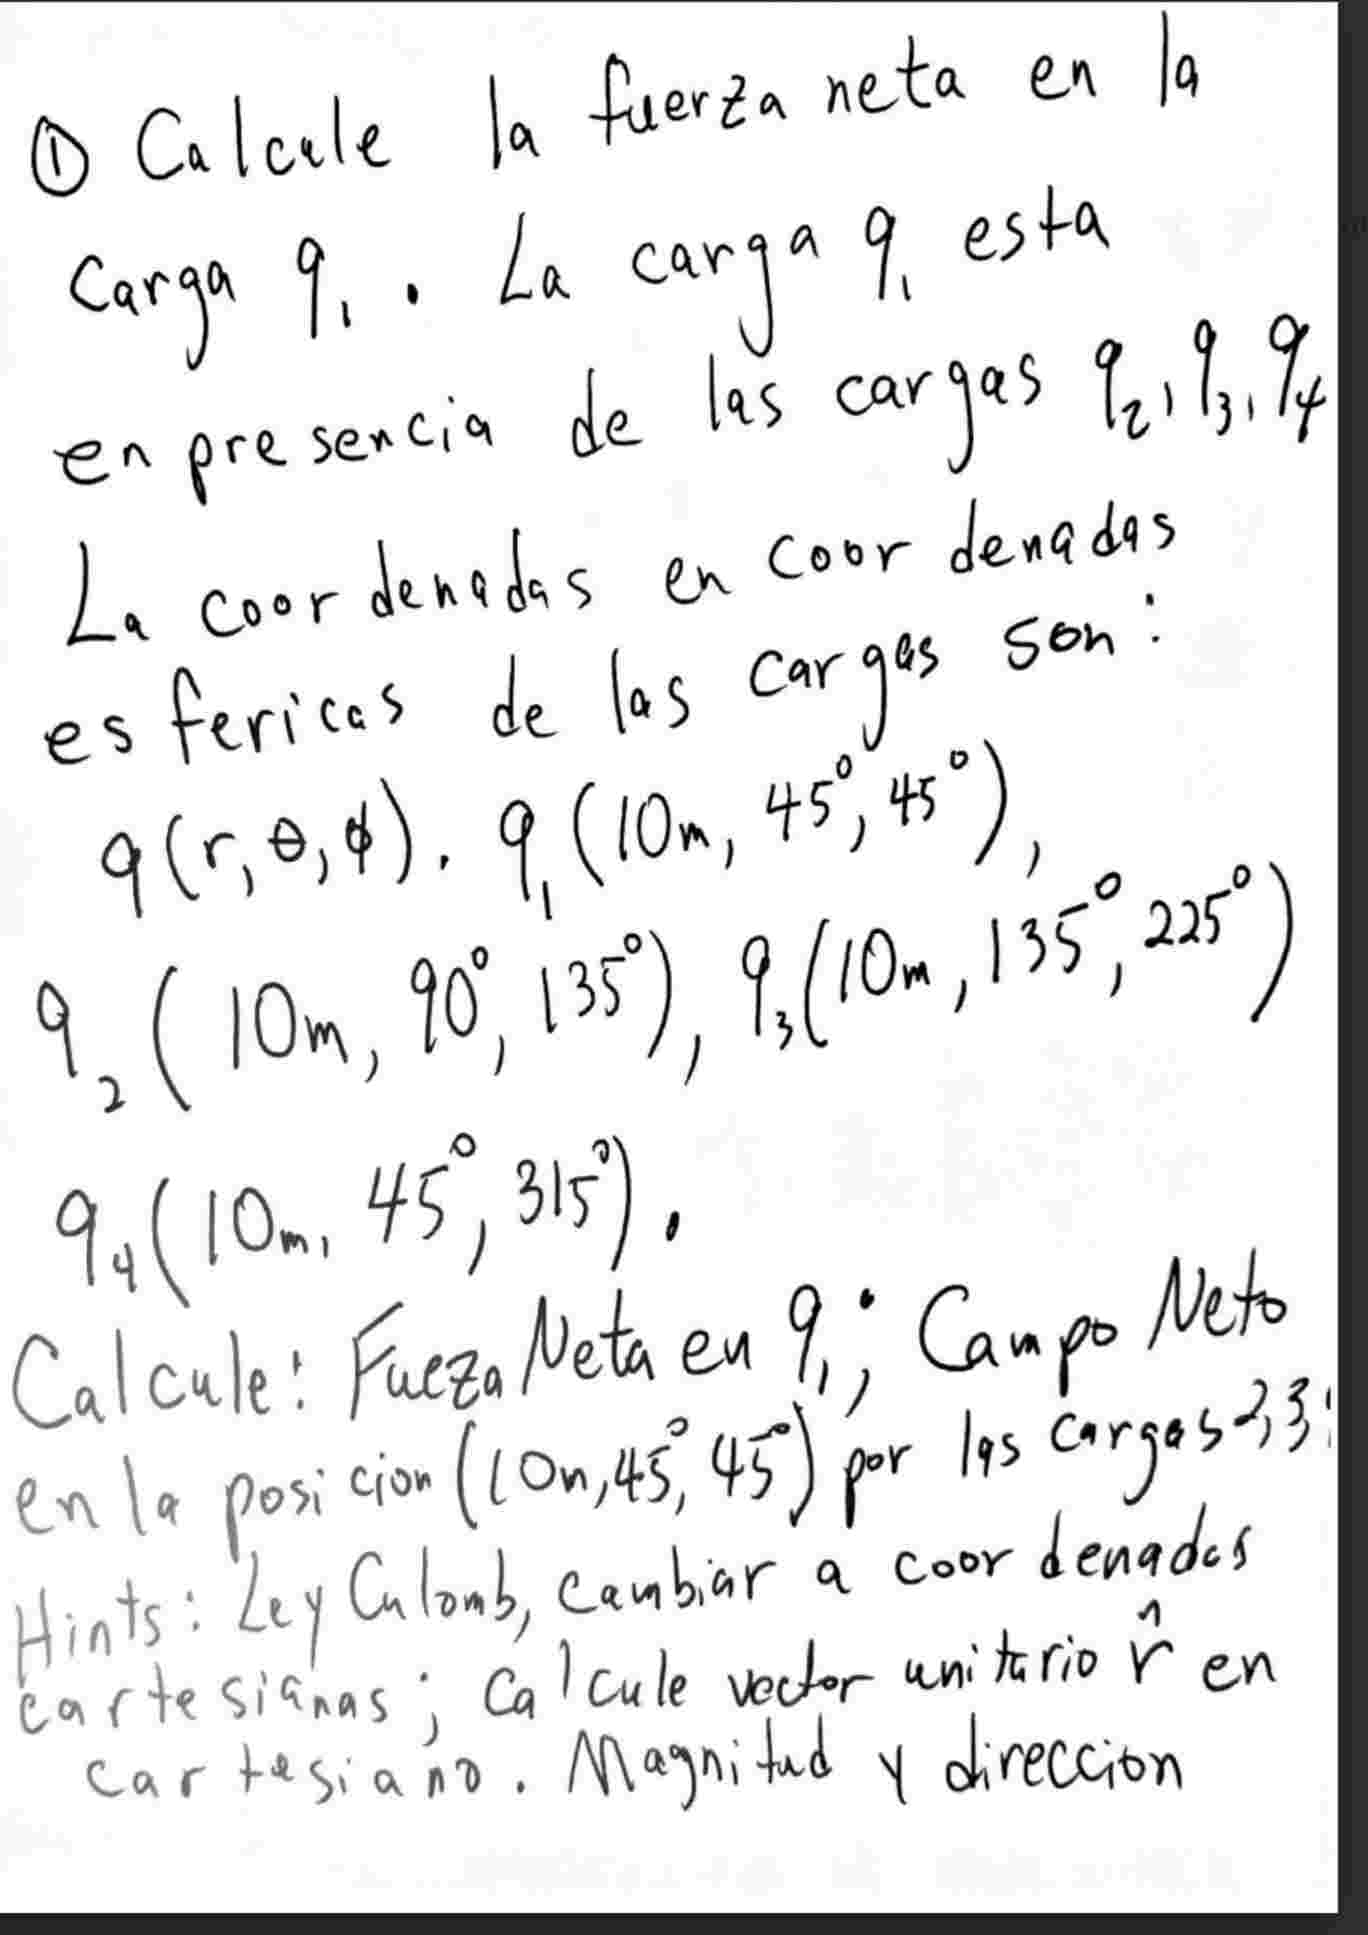 ① Calcule la fuerza neta en la
Carga q₁. La carga q₁ esta
en presencia de las cargas q₂, q₃, q₄
La coordenadas en coordenadas
esfericas de las cargas son:
q(r, θ, ϕ). q₁(10m, 45°, 45°),
q₂(10m, 90°, 135°), q₃(10m, 135°, 225°)
q₄(10m, 45°, 315°).
Calcule: Fueza Neta en q₁; Campo Neto
en la posicion (10m, 45°, 45°) por las cargas 2,3,
Hints: Ley Culomb, cambiar a coordenadas
cartesianas; Calcule vector unitario r̂ en
cartesiano. Magnitud y direccion